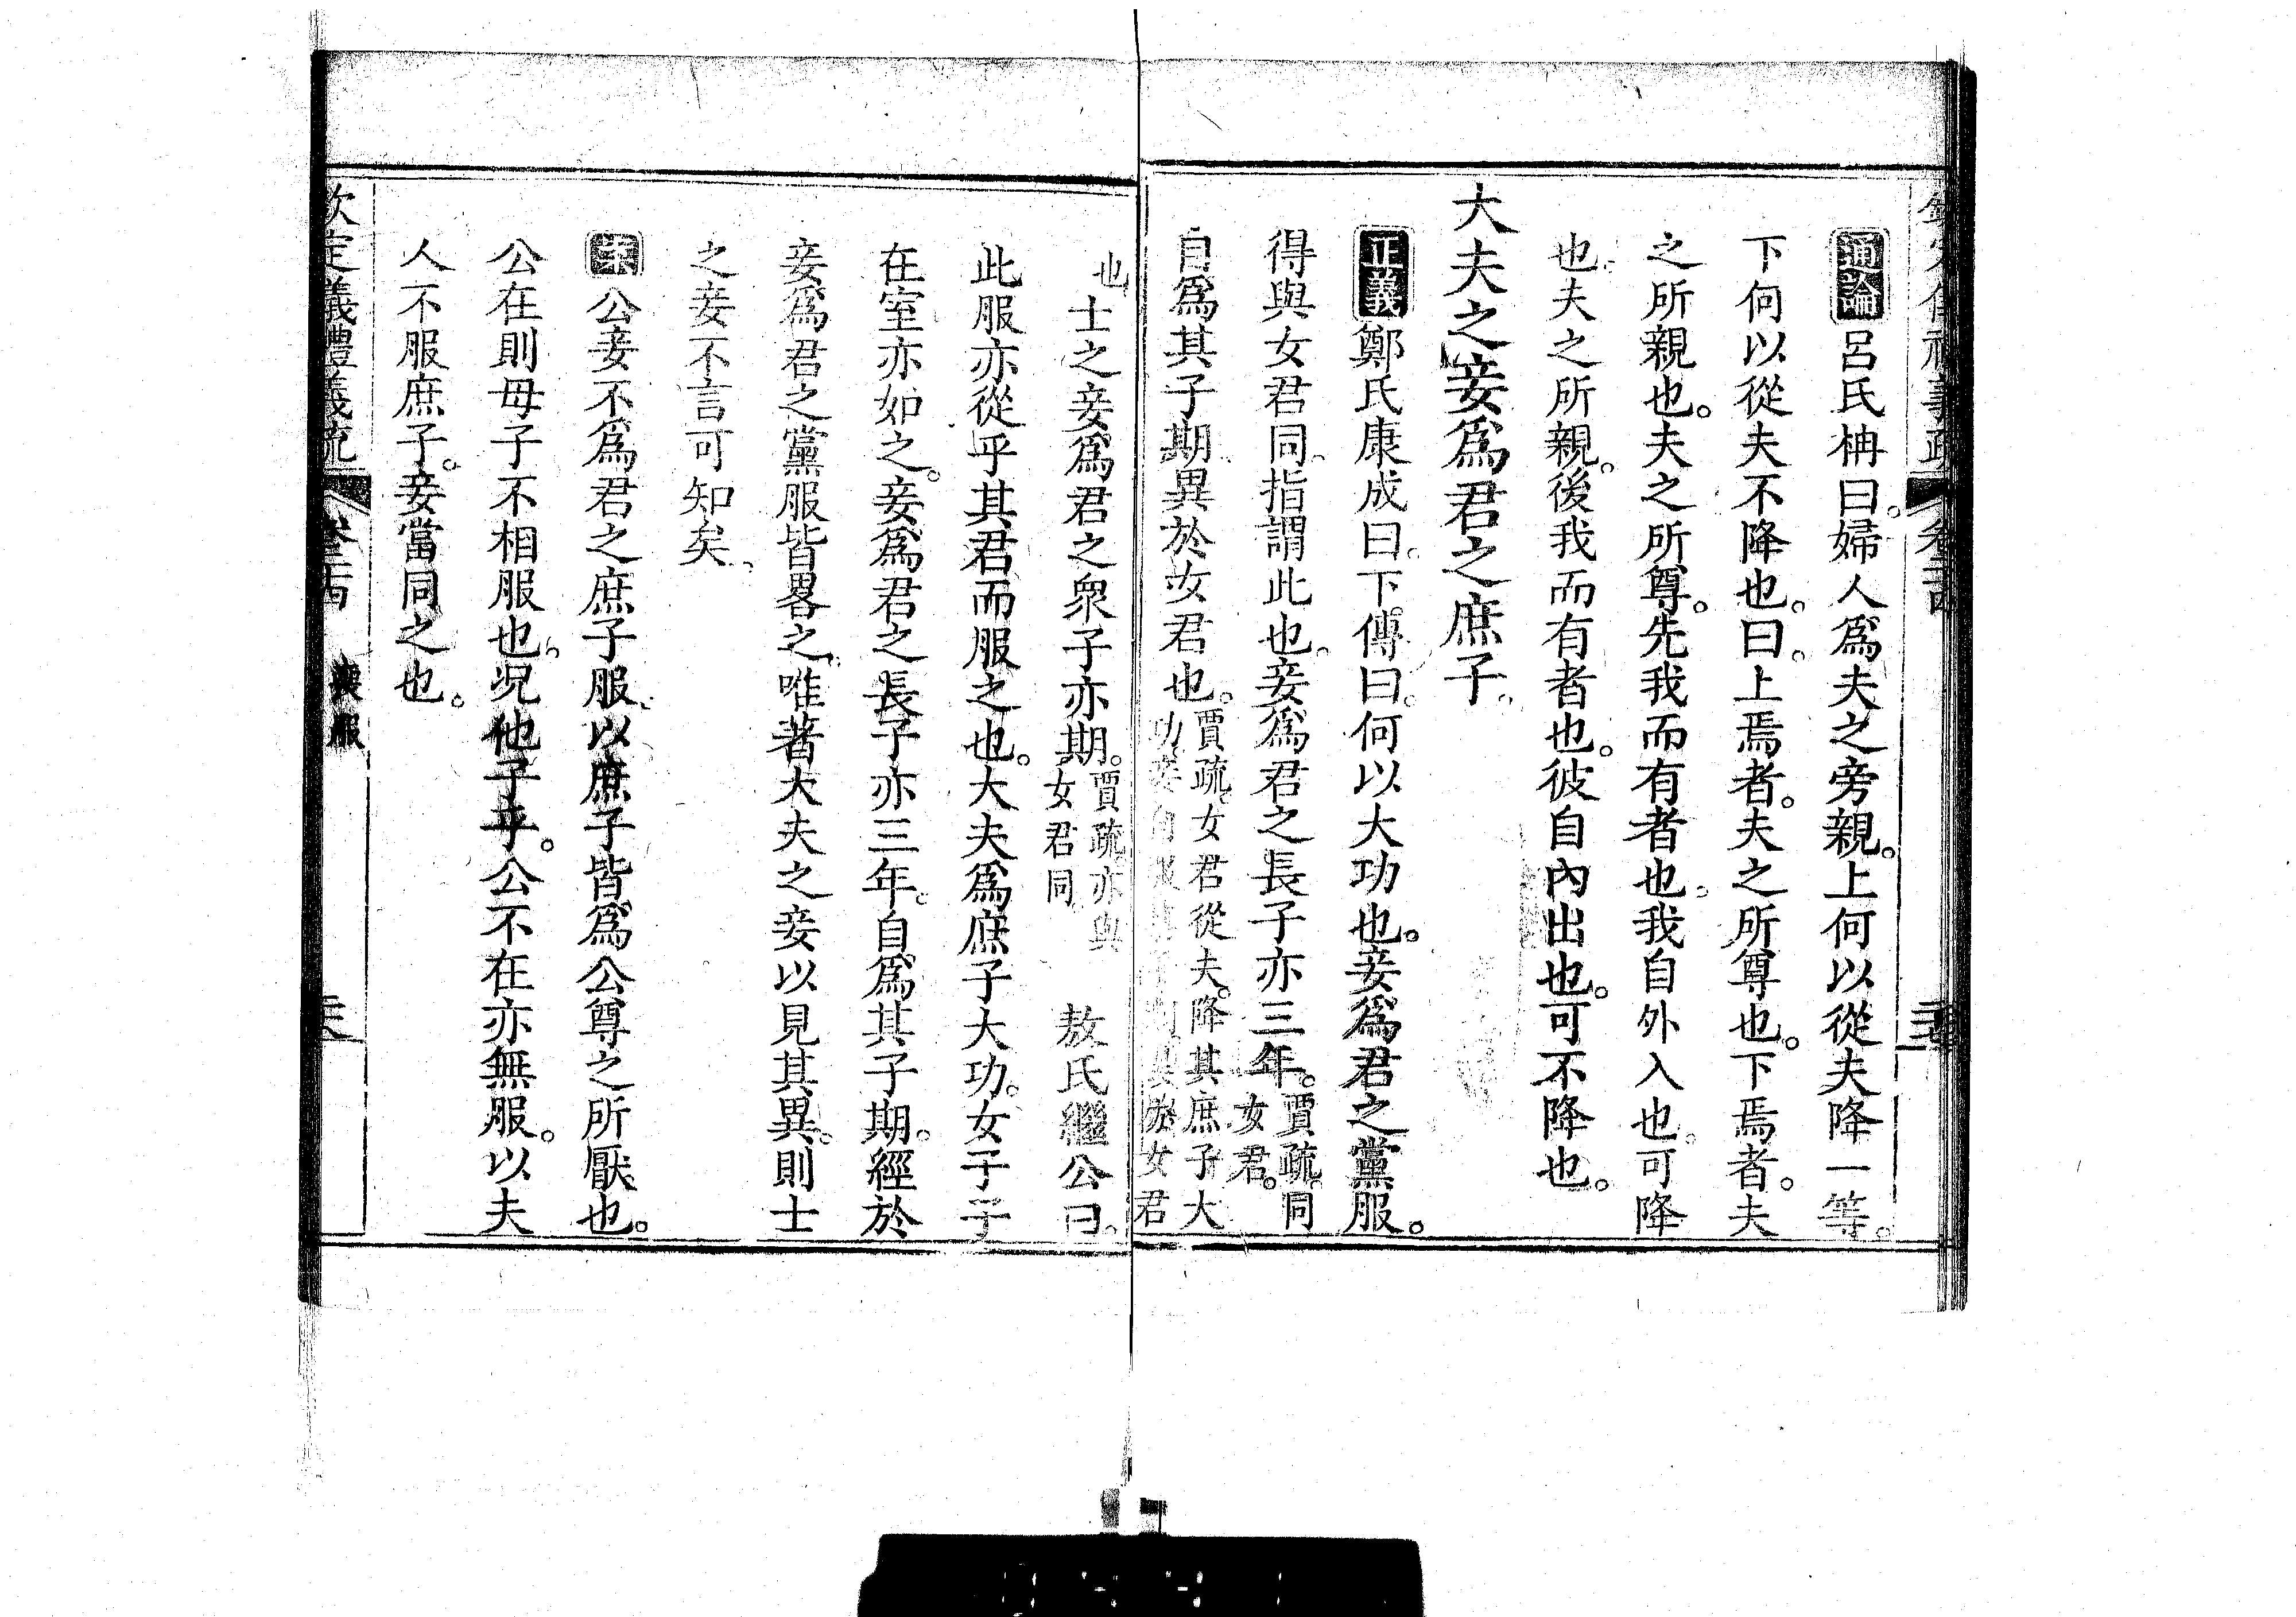 通論 呂氏柟曰。婦人爲夫之旁親。上何以從夫降一等。
下何以從夫不降也。曰。上焉者。夫之所尊也。下焉者。夫
之所親也。夫之所尊。先我而有者也。我自外入也。可降
也。夫之所親。後我而有者也。彼自內出也。可不降也。
大夫之妾爲君之庶子。
正義 鄭氏康成曰。下傳曰。何以大功也。妾爲君之黨服。
得與女君同。指謂此也。妾爲君之長子亦三年。賈疏。同女君。
自爲其子期。異於女君也。賈疏。女君從夫。降其庶子大功。女君
也。士之妾爲君之衆子亦期。賈疏亦與女君同。 敖氏繼公曰。
此服亦從乎其君而服之也。大夫爲庶子大功。女子子
在室亦如之。妾爲君之長子亦三年。自爲其子期。經於
妾爲君之黨服皆畧之。唯著大夫之妾以見其異。則士
之妾不言可知矣。
案 公妾不爲君之庶子服。以庶子皆爲公尊之所厭也。
公在則母子不相服也。况他子乎。公不在亦無服。以夫
人不服庶子。妾當同之也。
欽定儀禮義疏 卷二十四 喪服